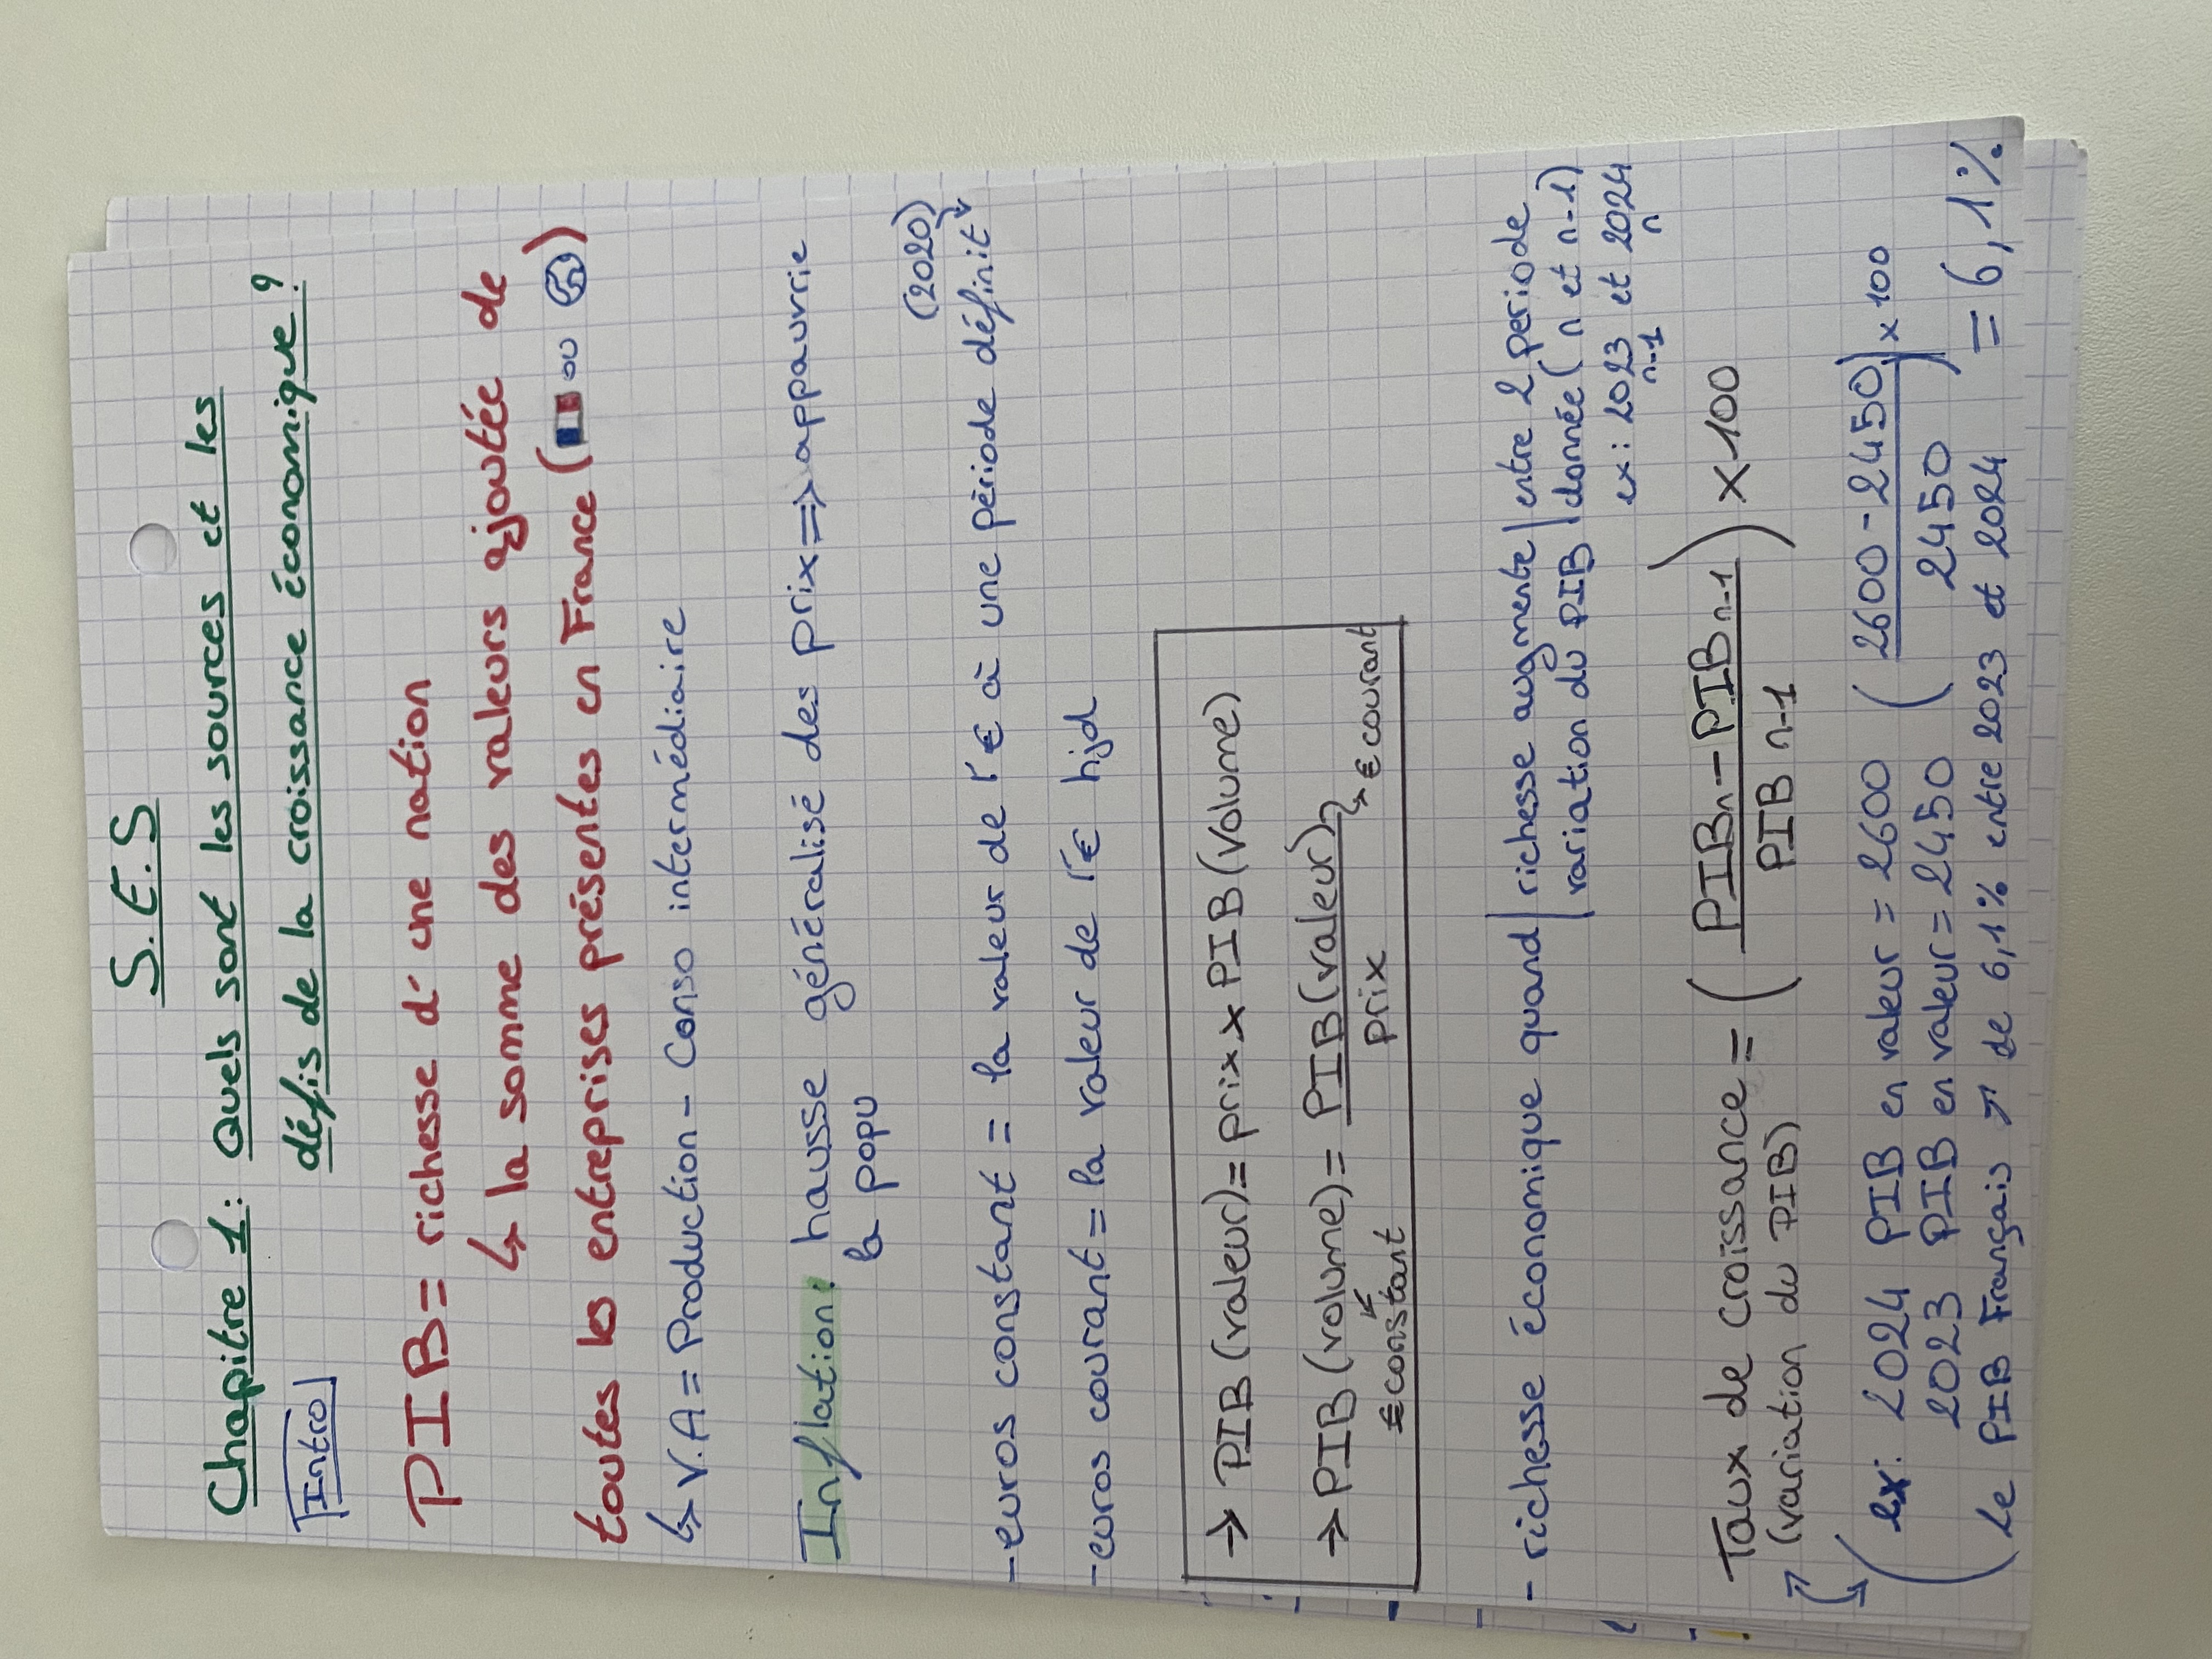 S.E.S
Chapitre 1: Quels sont les sources et les
défis de la croissance économique?
Intro
PIB = richesse d'une nation
↳ la somme des valeurs ajoutée de
toutes les entreprises présentes en France ( ou )
↳ V.A = Production - Conso intermédiaire
Inflation: hausse généralisé des prix => appauvrie
la popu
(2020)
- euros constant = la valeur de l'€ à une période définit
- euros courant = la valeur de l'€ hjd
→ PIB (valeur) = prix x PIB (Volume)
→ PIB (volume) = PIB (valeur)
prix
€ courant
€ constant
- richesse économique quand | richesse augmente | entre 2 periode
variation du PIB | donnée ( n et n-1)
ex: 2023 et 2024
n-1 n
Taux de croissance = ( PIBn - PIB n-1 ) x 100
(variation du PIB) PIB n-1
ex: 2024 PIB en valeur = 2600 ( 2600 - 2450 ) x 100
2023 PIB en valeur = 2450 2450
Le PIB Français ↗ de 6,1% entre 2023 et 2024 = 6,1%